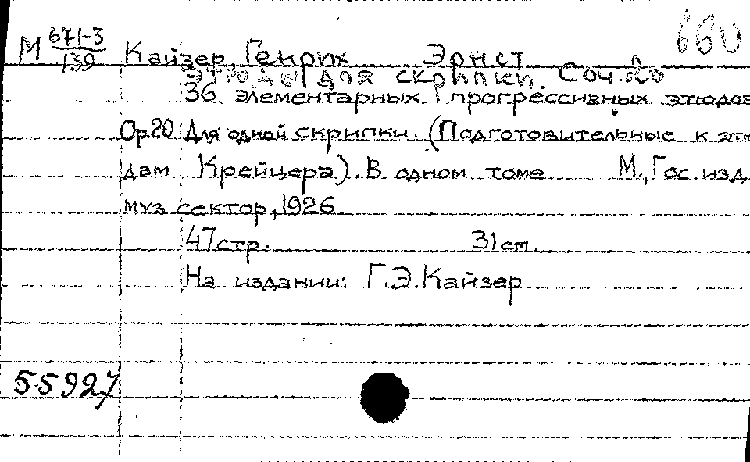 М 671-3/139 Кайзер, Генрих Эрнст
Этюды для скрипки. Соч. 20
36 элементарных прогрессивных этюдов
Ор. 20 Для одной скрипки. (Подготовительные к этю
дам Крейцера). В одном томе М., Гос. изд.
муз. сектор, 1926
47 стр. 31 см.
На издании: Г. Э. Кайзер
55927